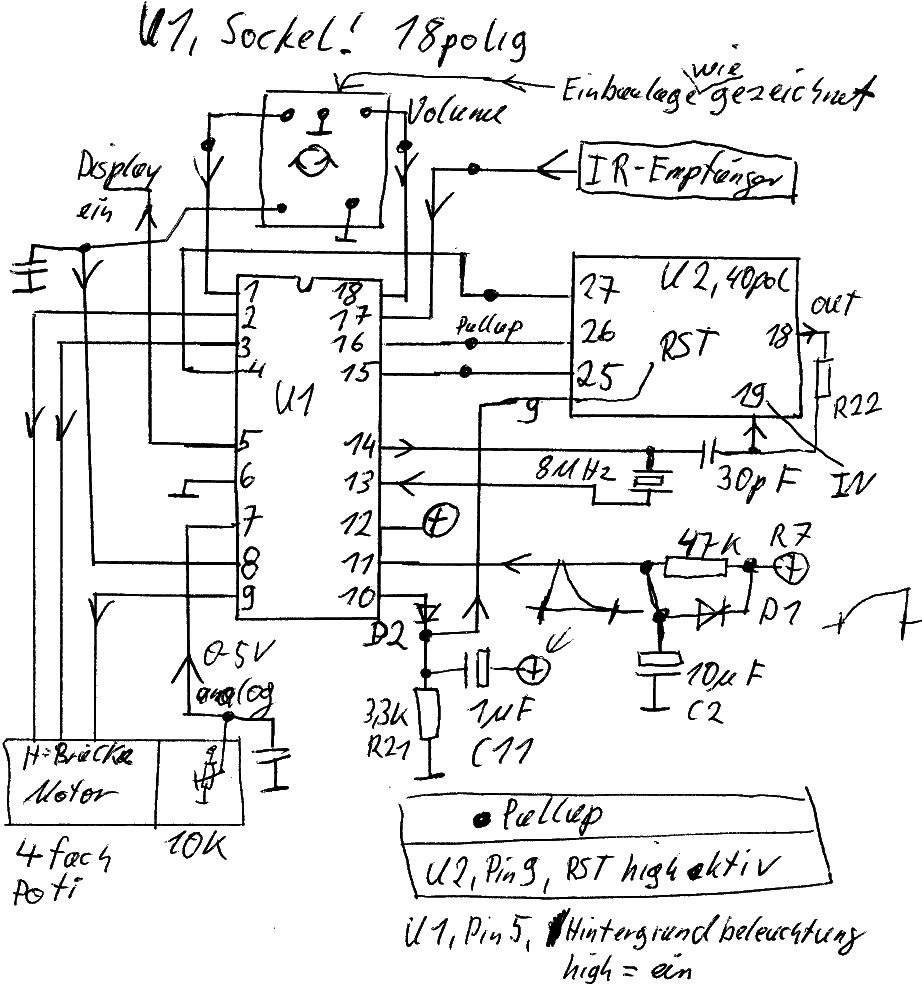 U1, Sockel! 18polig
wie
Einbaulage gezeichnet
Volume
Display
ein
IR-Empfänger
U2, 40pol
out
1
2
3
4
5
6
7
8
9
U1
18
17
16
15
14
13
12
11
10
Pullup
27
26
25
RST
18
19
9
R22
8MHz
30pF
IN
+
47K
R7
+
D1
D2
0-5V
analog
3,3K
R21
1µF
C11
+
10µF
C2
H-Brücke
Motor
10K
4-fach
Poti
Pullup
U2, Pin9, RST high aktiv
U1, Pin5, Hintergrundbeleuchtung
high = ein